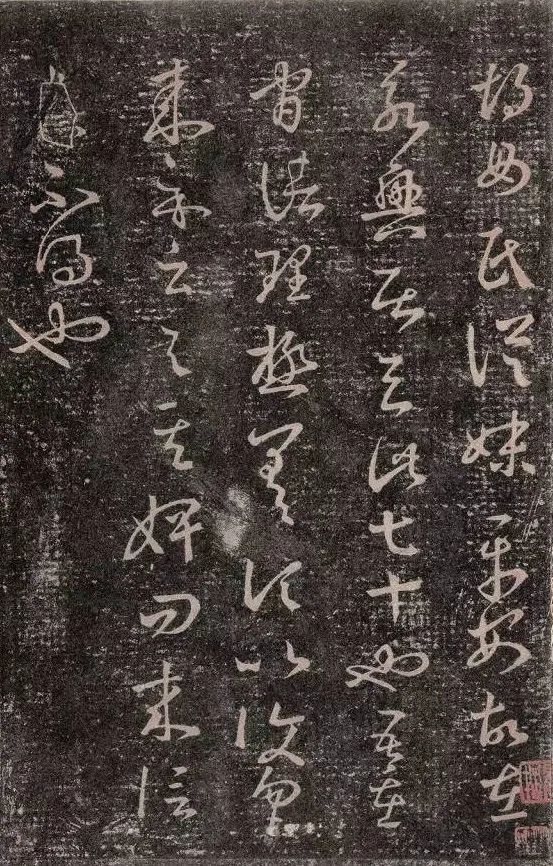 胡母氏從妹平安故在
永興居去此七十也吾在
官諸理極差頃比復匆匆
來示云與其婢問來信
不得也